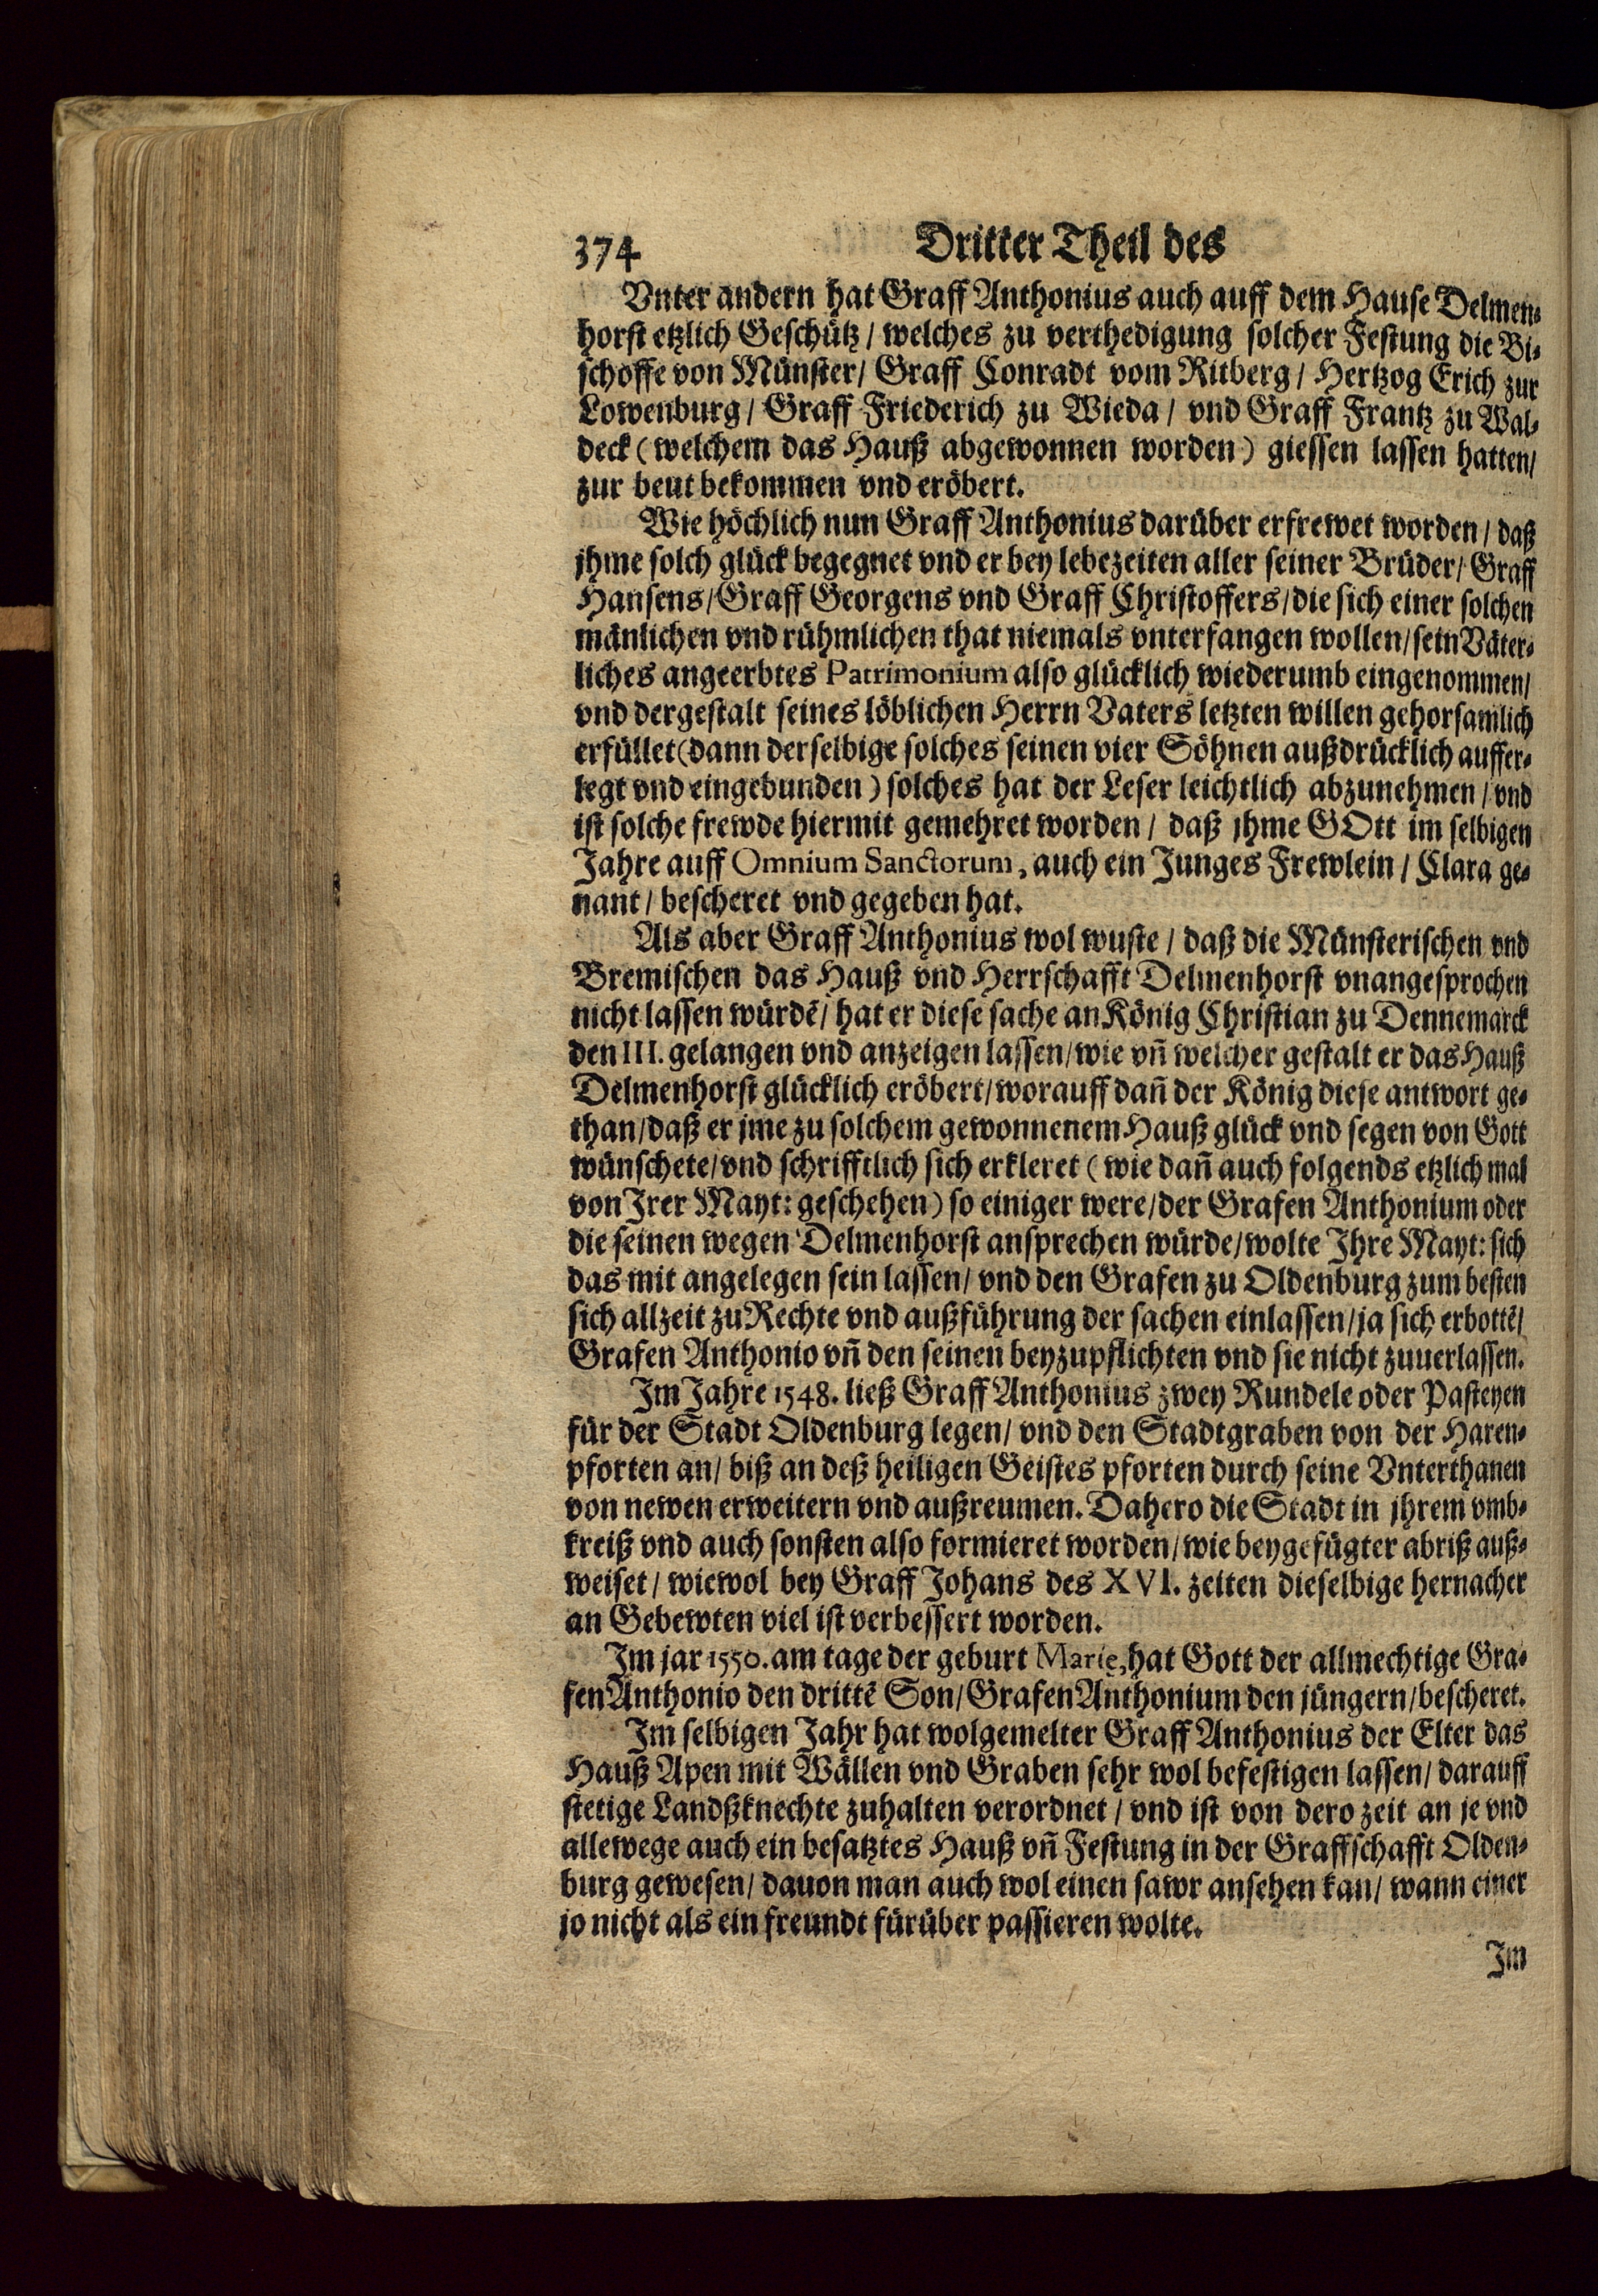 374 Dritter Theil des
Vnter andern hat Graff Anthonius auch auff dem Hause Delmen-
horst etzlich Geschütz / welches zu verthedigung solcher Festung die Bi-
schoffe von Münster / Graff Conradt vom Ritberg / Hertzog Erich zur
Lowenburg / Graff Friederich zu Wieda / vnd Graff Frantz zu Wal-
deck (welchem das Hauß abgewonnen worden) giessen lassen hatten /
zur beut bekommen vnd eröbert.
Wie höchlich nun Graff Anthonius darüber erfrewet worden / daß
jhme solch glück begegnet vnd er bey lebezeiten aller seiner Brüder / Graff
Hansens / Graff Georgens vnd Graff Christoffers / die sich einer solchen
mänlichen vnd rühmlichen that niemals vnterfangen wollen / sein Väter-
liches angeerbtes Patrimonium also glücklich wiederumb eingenommen /
vnd dergestalt seines löblichen Herrn Vaters letzten willen gehorsamlich
erfüllet (dann derselbige solches seinen vier Söhnen außdrücklich auffer-
legt vnd eingebunden) solches hat der Leser leichtlich abzunehmen / vnd
ist solche frewde hiermit gemehret worden / daß jhme GOtt im selbigen
Jahre auff Omnium Sanctorum, auch ein Junges Frewlein / Clara ge-
nant / bescheret vnd gegeben hat.
Als aber Graff Anthonius wol wuste / daß die Münsterischen vnd
Bremischen das Hauß vnd Herrschafft Delmenhorst vnangesprochen
nicht lassen würdẽ / hat er diese sache an König Christian zu Dennemarck
den III. gelangen vnd anzeigen lassen / wie vñ welcher gestalt er das Hauß
Delmenhorst glücklich eröbert / worauff dañ der König diese antwort ge-
than / daß er jme zu solchem gewonnenem Hauß glück vnd segen von Gott
wünschete / vnd schrifftlich sich erkleret (wie dañ auch folgends etzlich mal
von Irer Mayt: geschehen) so einiger were / der Grafen Anthonium oder
die seinen wegen Delmenhorst ansprechen würde / wolte Ihre Mayt: sich
das mit angelegen sein lassen / vnd den Grafen zu Oldenburg zum besten
sich allzeit zu Rechte vnd außführung der sachen einlassen / ja sich erbottẽ /
Grafen Anthonio vñ den seinen beyzupflichten vnd sie nicht zuuerlassen.
Im Jahre 1548. ließ Graff Anthonius zwey Rundele oder Pasteyen
für der Stadt Oldenburg legen / vnd den Stadtgraben von der Haren-
pforten an / biß an deß heiligen Geistes pforten durch seine Vnterthanen
von newen erweitern vnd außreumen. Dahero die Stadt in jhrem vmb-
kreiß vnd auch sonsten also formieret worden / wie beygefügter abriß auß-
weiset / wiewol bey Graff Johans des XVI. zeiten dieselbige hernacher
an Gebewten viel ist verbessert worden.
Im jar 1550. am tage der geburt Marię, hat Gott der allmechtige Gra-
fen Anthonio den drittẽ Son / Grafen Anthonium den jüngern / bescheret.
Im selbigen Jahr hat wolgemelter Graff Anthonius der Elter das
Hauß Apen mit Wällen vnd Graben sehr wol befestigen lassen / darauff
stetige Landßknechte zuhalten verordnet / vnd ist von dero zeit an je vnd
allewege auch ein besatztes Hauß vñ Festung in der Graffschafft Olden-
burg gewesen / dauon man auch wol einen sawr ansehen kan / wann einer
jo nicht als ein freundt fürüber passieren wolte.
Im